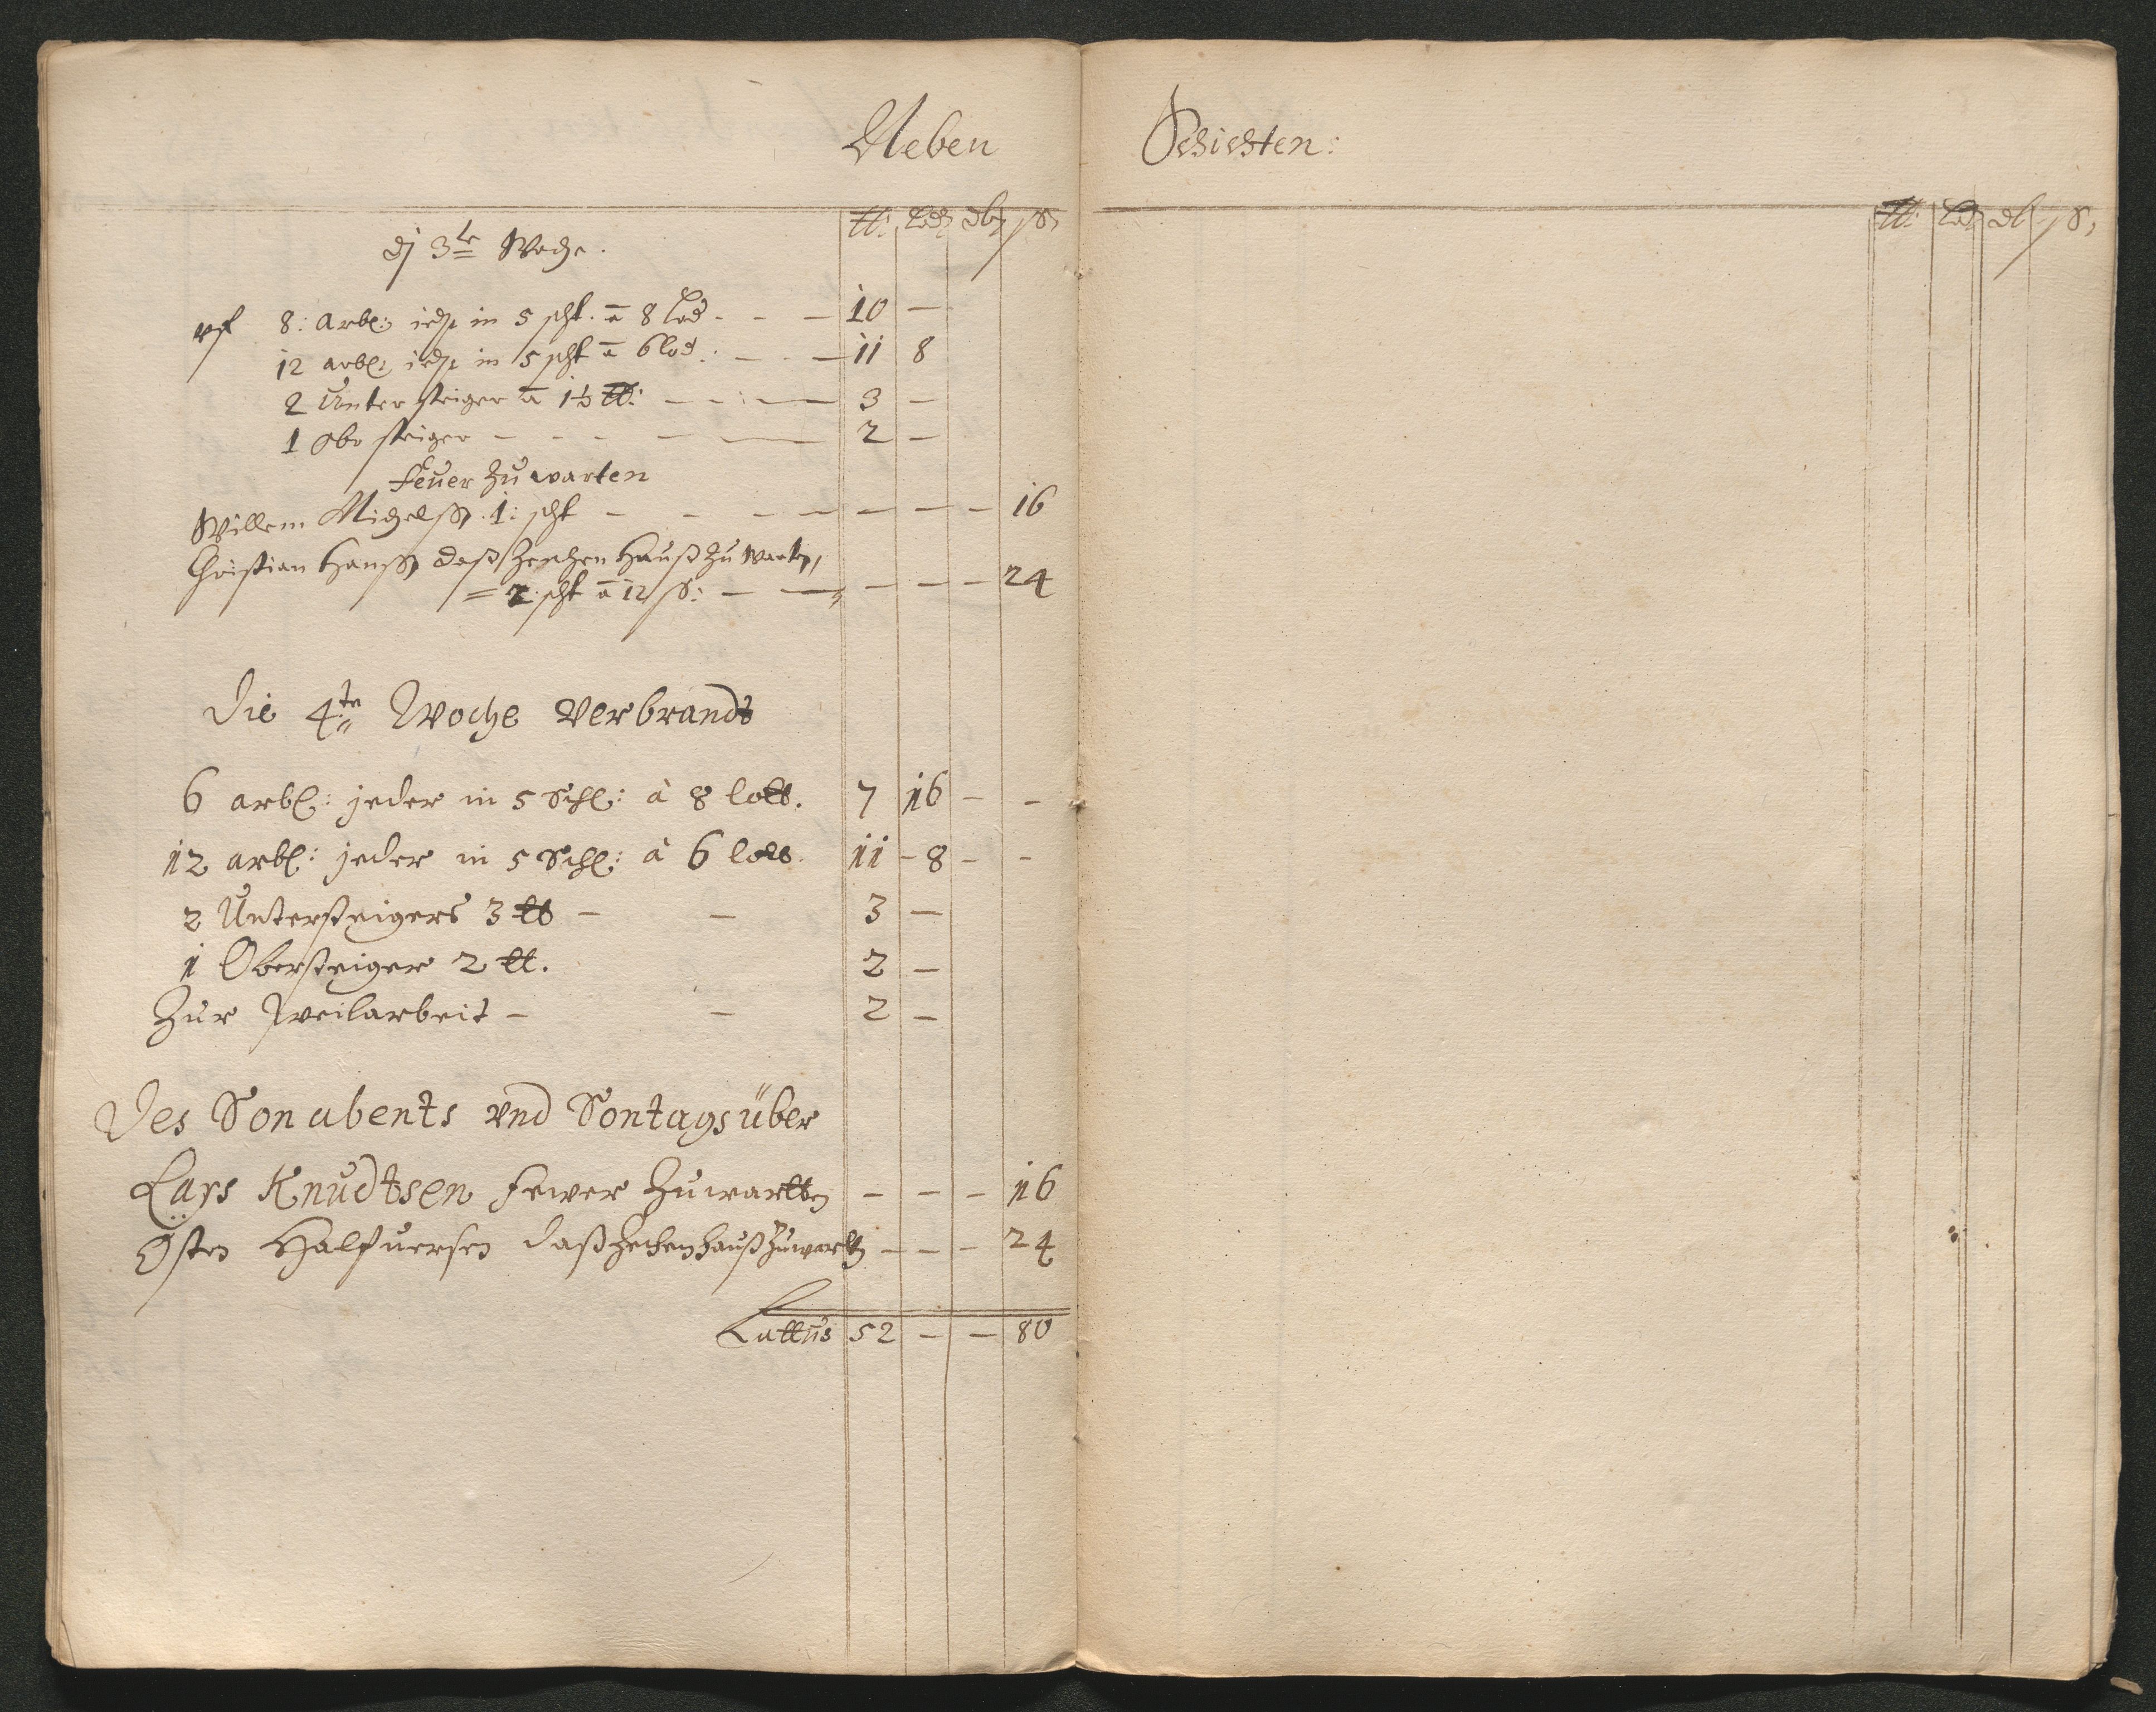 Neben Schichten:
℔: Lod dl ß
℔: Lod dl ß
dj 3te Woche.
vf 8: Arbl: ieder in 5 scht. a 8 Lod - - - 10 -
12 arbl: ieder in 5 scht a 6 lod: - - - 11 8
2 Untersteiger a 1½ ℔: - - - 3 -
1 Obersteiger - - - 2 -
Feüer zu warten
Willem Michelß 1: scht - - - 16
Christian Hanß daß Zechen Hauß zu warten,
= 2 scht a 12 ß: - - - 24
Die 4te Woche Verbrandt
6 arbl: jeder in 5 Schl: à 8 lott. 7 16 - -
12 arbl: jeder in 5 Schl: à 6 lott. 11 - 8 - -
2 Untersteigers 3 ℔ - - 3 -
1 Obersteiger 2 ℔. 2 -
Zur Weilarbeit - - 2 -
Des Sonabents vnd Sontags über
Lars Knudtsen fewer zu wartten - - - 16
Östen Halfuersen daß Zechenhauß zuwarten - - - 24
Lattus 52 - - 80